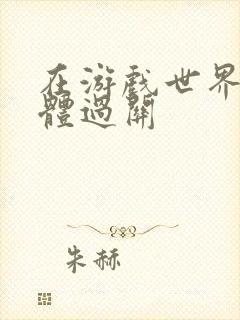 在游戏世界
體過關
朱赫